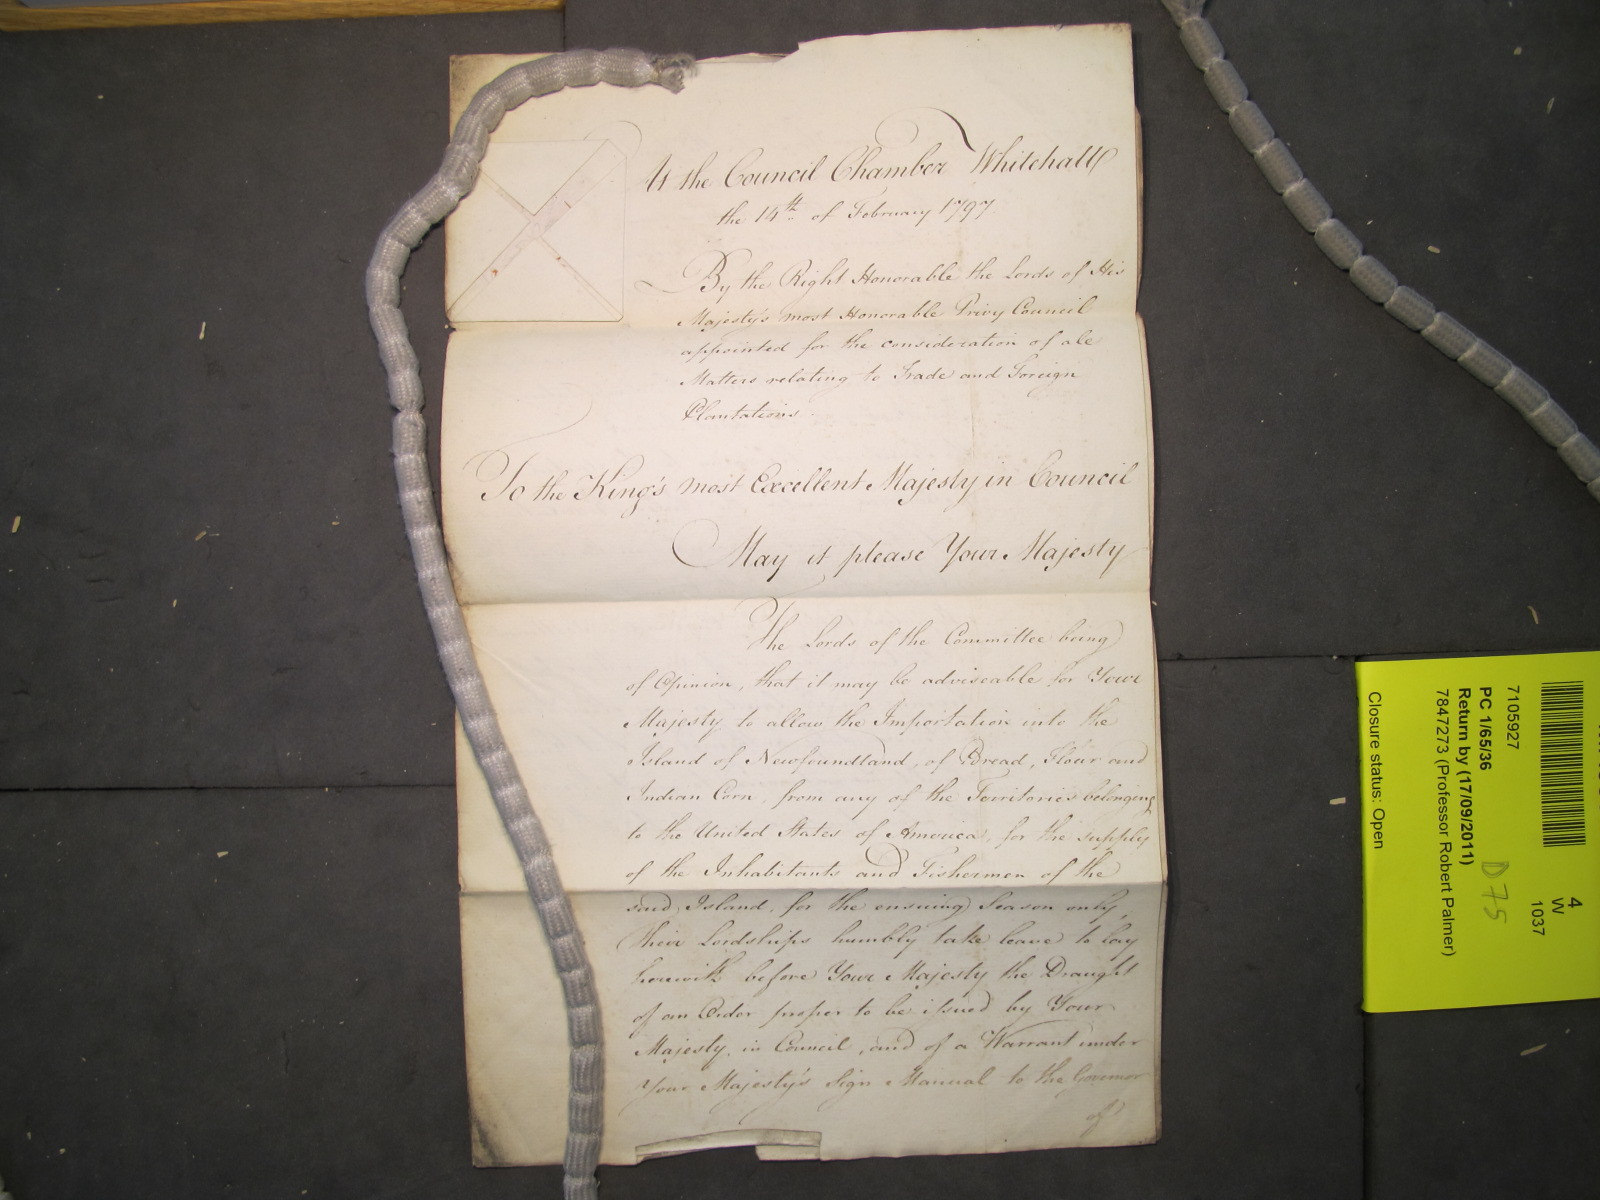 At the Council Chamber Whitehall
the 14th of February 1797.
By the Right Honorable the Lords of His
Majesty's most Honorable Privy Council
appointed for the consideration of all
Matters relating to Trade and Foreign
Plantations.
To the King's most Excellent Majesty in Council
May it please Your Majesty
The Lords of the Committee being
of Opinion, that it may be adviseable for Your
Majesty to allow the Importation into the
Island of Newfoundland, of Bread, Flour and
Indian Corn, from any of the Territories belonging
to the United States of America, for the supply
of the Inhabitants and Fishermen of the
said Island, for the ensuing Season only,
Their Lordships humbly take leave to lay
herewith before Your Majesty the Draught
of an Order proper to be issued by Your
Majesty, in Council, and of a Warrant under
Your Majesty's Sign Manual to the Governor
of
4
W
1037
7105927
PC 1/65/36
Return by (17/09/2011)
7847273 (Professor Robert Palmer)
Closure status: Open
D75